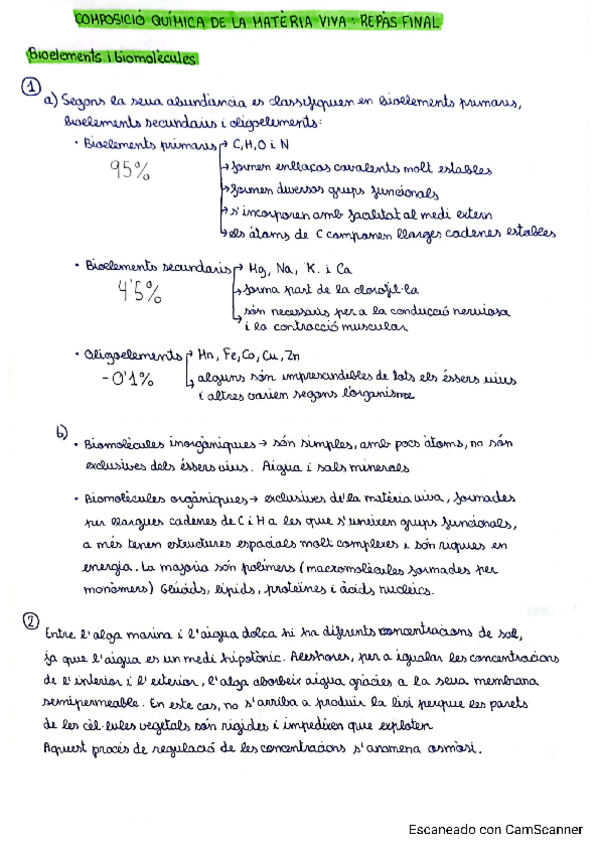 COMPOSICIÓ QUÍMICA DE LA MATÈRIA VIVA: REPÀS FINAL
Bioelements i biomolècules
1
a) Segons la seua abundància es classifiquen en bioelements primaris,
bioelements secundaris i oligoelements:
• Bioelements primaris → C, H, O i N
95% → formen enllaços covalents molt estables
→ formen diversos grups funcionals
→ s'incorporen amb facilitat al medi extern
→ els àtoms de C componen llarges cadenes estables
• Bioelements secundaris → Mg, Na, K i Ca
4'5% → forma part de la clorofil·la
→ són necessaris per a la conducció nerviosa
i la contracció muscular
• Oligoelements → Mn, Fe, Co, Cu, Zn
-0'1% → alguns són imprescindibles de tots els éssers vius
i altres varien segons l'organisme
b)
• Biomolècules inorgàniques → són simples, amb pocs àtoms, no són
exclusives dels éssers vius. Aigua i sals minerals
• Biomolècules orgàniques → exclusives de la matèria viva, formades
per llargues cadenes de C i H a les que s'uneixen grups funcionals,
a més tenen estructures espacials molt complexes i són riques en
energia. La majoria són polímers (macromolècules formades per
monòmers) Glúcids, lípids, proteïnes i àcids nucleics.
2
Entre l'alga marina i l'aigua dolça hi ha diferents concentracions de sal,
ja que l'aigua es un medi hipotònic. Aleshores, per a igualar les concentracions
de l'interior i l'exterior, l'alga absorbeix aigua gràcies a la seua membrana
semipermeable. En este cas, no s'arriba a produir la lisi perque les parets
de les cèl·lules vegetals són rígides i impedixen que exploten
Aquest procés de regulació de les concentracions s'anomena osmòsi.
Escaneado con CamScanner